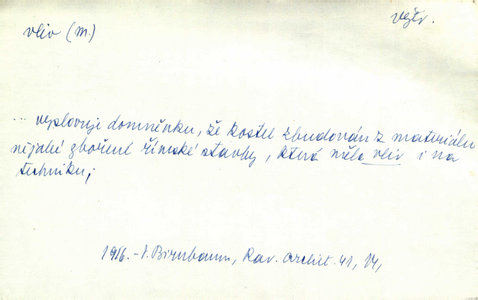 vliv (m.)
výtv.
... vyslovuje domněnku, že kostel zbudován z materiálu
nějaké zbořené římské stavby, která měla vliv i na
techniku;
1916. - V. Birnbaum, Rav. archit. 41, 14,